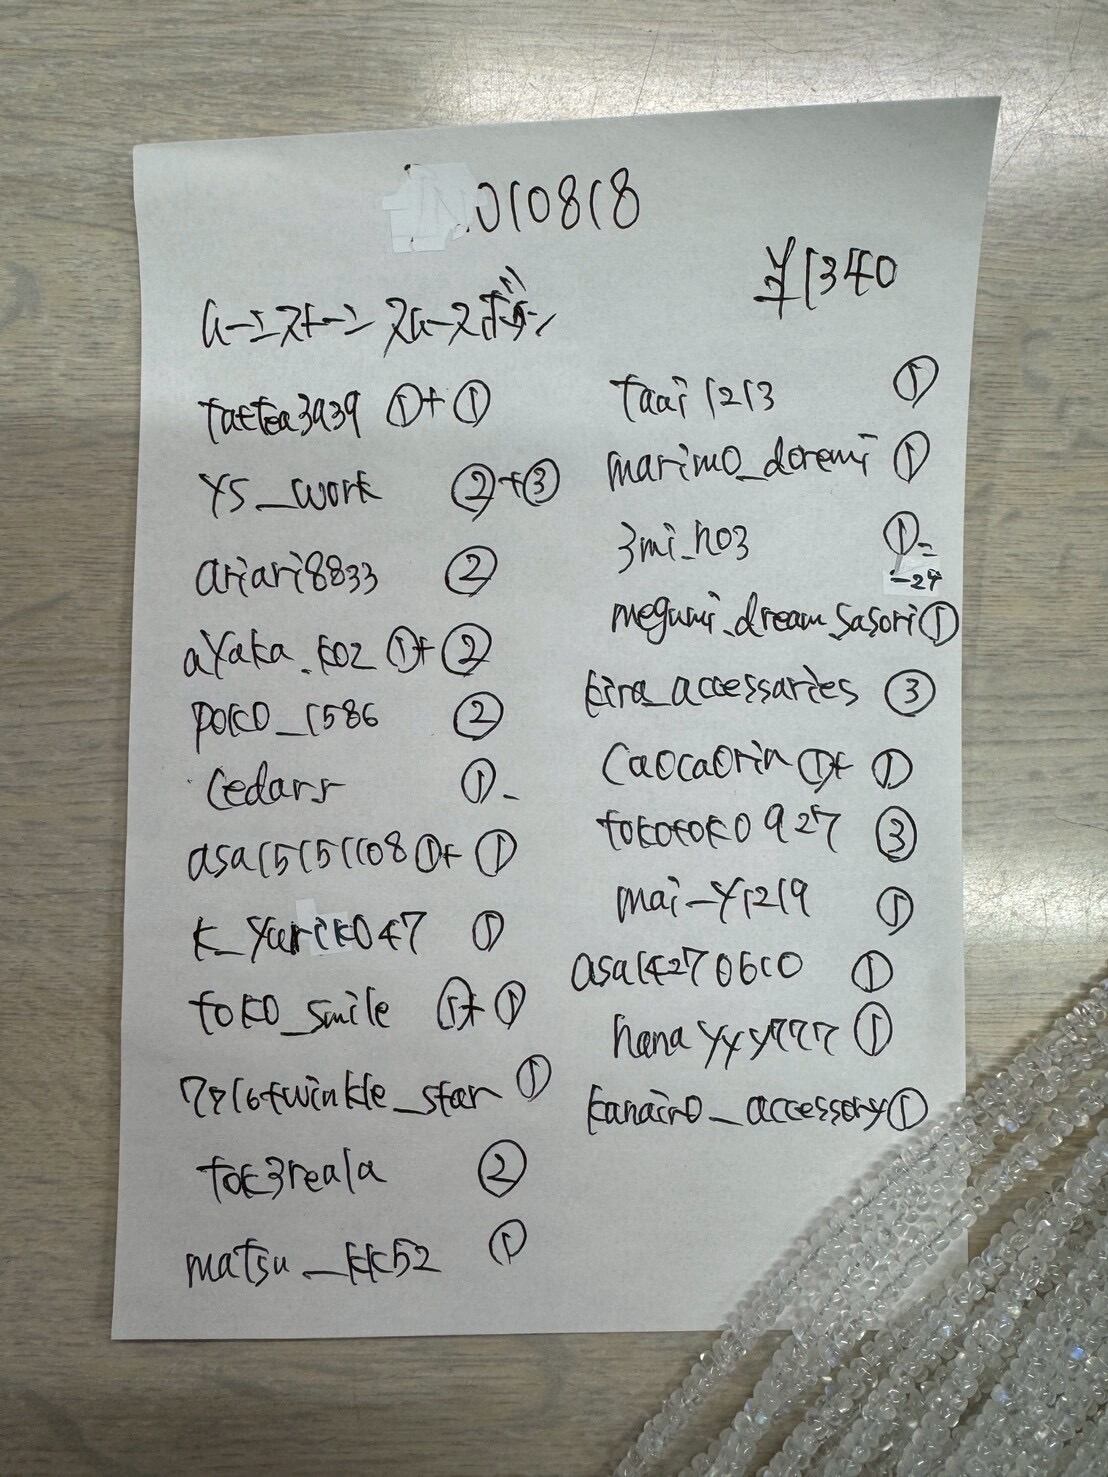 010818
¥1340
ムーンストーン
taetea3939 ①+①
ys_work ②+③
ariari8833 ②
ayaka.koz ①+②
poko_1586 ②
cedarr ①-
asa15151108 ①+①
k_yuriko47 ①
toko_smile ①+①
twinkle_star ①
tok3reala ②
matsu_kk52 ①
taai1213 ①
marimo_doremi ①
3mi_ho3 ①=
-24
megumi_dream_sasori ①
kira_accessaries ③
caocaorin ①+①
tokotoko0927 ③
mai_y1219 ①
asa14270610 ①
hanayyy777 ①
kanairo_accessory ①